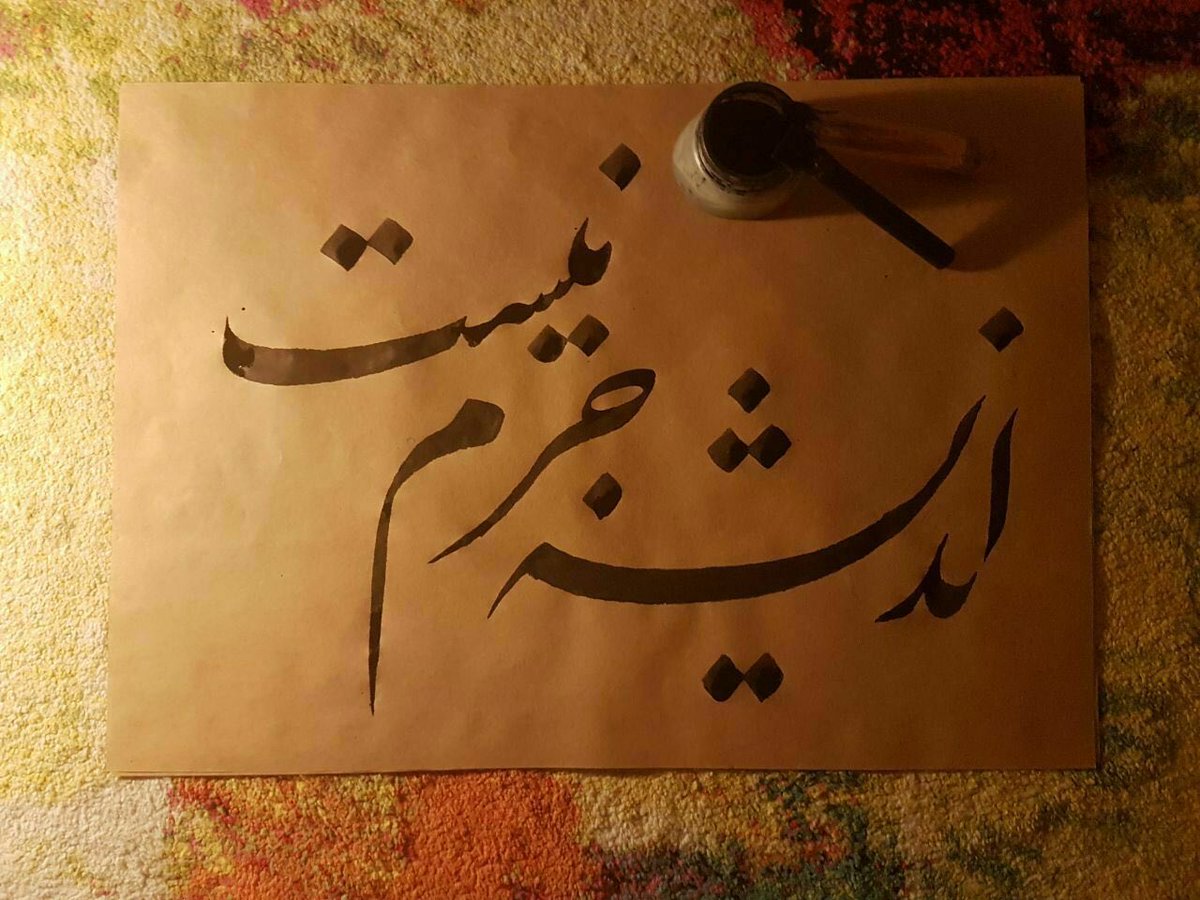 اندیشه جرم نیست